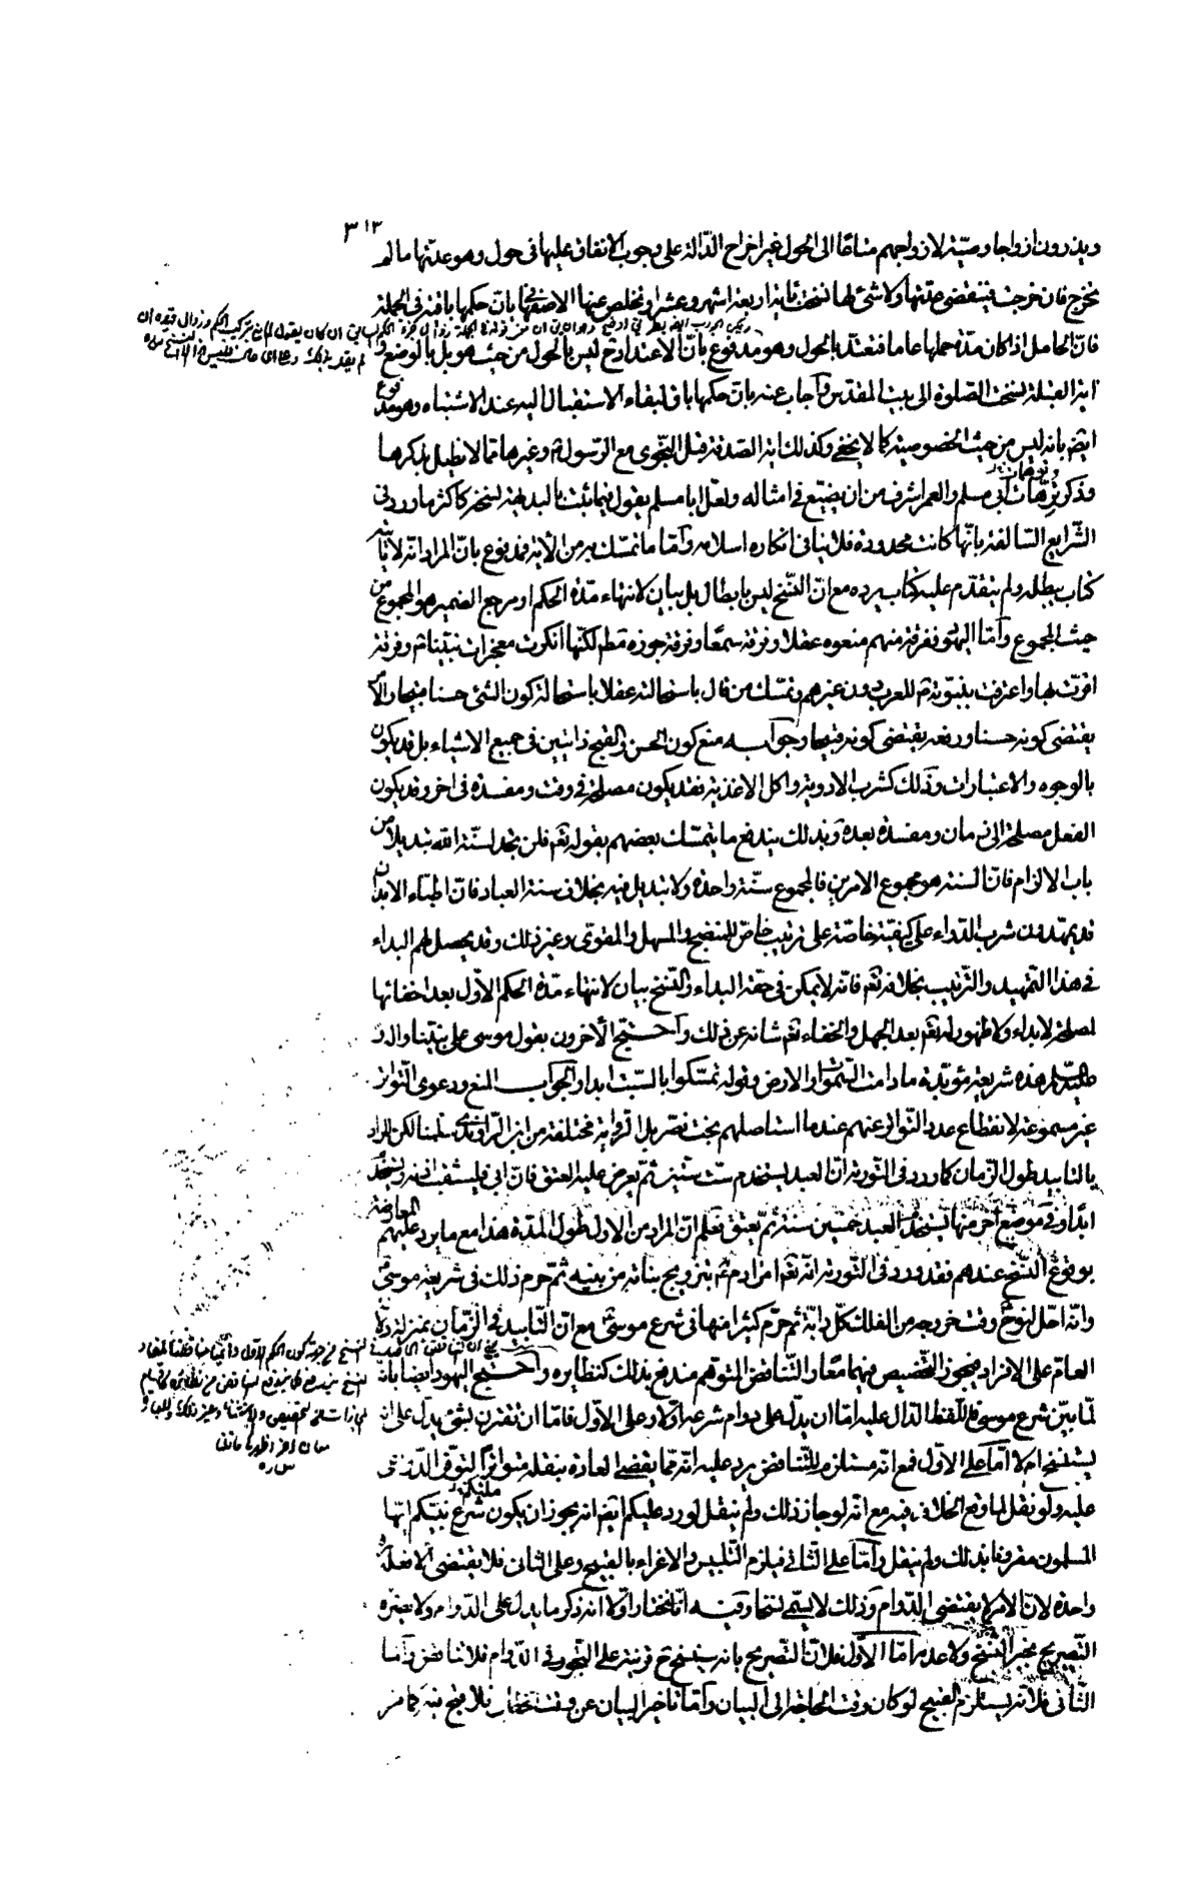 ٣١٣
ويذرون ازواجا وصيّة لازواجهم متاعًا الى الحول غير اخراج الدّالة على وجوب الانفاق عليها فى حول وهو عدّتها ما لم
يخرج فان خرجت فينقضى عدّتها ولا شئ لها نسخت باية اربعة اشهر وعشرا وتخلص عنها الاصفهانى بانّ حكمها باق فى الجملة
فانّ الحامل اذا كان مدّة حملها عاما فتعتدّ بالحول وهو مدفوع بانّ الاعتداد ح ليس بالحول من حيث هو بل بالوضع و
اية القبلة نسخت الصّلوة الى بيت المقدس وآجاب عنه بانّ حكمها باق لبقاء الاستقبال اليه عند الاشتباه وهو مدفوع
ايضا بانه ليس من حيث الخصوصية كما لا يخفى وكذلك اية الصّدقة قبل النّجوى مع الرّسول ص وغيرها ممّا لا نطيل بذكرها
وذكر ترّهات ابى مسلم والعمر اشرف من ان يضيّع فى امثاله ولعلّ ابا مسلم يقول فيما ثبت بالبديهة نسخه كاكثر ما ورد فى
الشّرايع السّالفة بانّها كانت محدودة فلا ينافى انكاره اسلامه وآمّا ما تمسّك به من الاية فمدفوع بانّ المراد انه لا ياتيه
كتاب يبطله ولم يتقدّم عليه كتاب يردّه مع انّ النّسخ ليس بابطال بل بيان لانتهاء مدّة الحكم او مرجع الضمير هو المجموع من
حيث المجموع وآمّا اليهود ففرقة منهم منعوه عقلا وفرقة سمعًا وفرقة جوزه مطلقا لكنّها انكرت معجزات نبيّنا ص وفرقة
اقرّت بها واعترفت بنبوّته ص للعرب دون غيرهم وتمسّك من قال باستحالته عقلا باستحالة كون الشئ حسنا وقبيحا والامر
يقتضى كونه حسنا ورفعه يقتضى كونه قبيحا وجوابه منع كون الحسن والقبح ذاتيين فى جميع الاشياء بل قد يكون
بالوجوه والاعتبارات وذلك كشرب الادوية واكل الاغذية فقد يكون مصلحة فى وقت ومفسدة فى اخر وقد يكون
الفعل مصلحة الى زمان ومفسدة بعده وبذلك يندفع ما يتمسّك بعضهم بقوله تعم فلن تجد لسنّة الله تبديلا من
باب الالزام فانّ السنة هو مجموع الامرين فالمجموع سنّة واحدة ولا تبديل فيه بخلاف سنة العباد فانّ اطبّاء الابدان
قد يمهّدون شرب الدّواء على كيفيّة خاصّة على ترتيب خاصّ للمنضج والمسهل والمقوى وغير ذلك وقد يحصل لهم البداء
فى هذا التّمهيد والتّرتيب بخلافه تعم فانّه لا يمكن فى حقه البداء والنّسخ بيان لانتهاء مدّة الحكم الاوّل بعد اخفائها
لمصلحة لا بداء ولا ظهور له تعم بعد الجهل والخفاء تعم شانه عن ذلك وآحتجّ الآخرون بقول موسى على نبيّنا واله و
عليه السّلام هذه شريعة مؤبّدة ما دامت السّموات والارض وقوله تمسّكوا بالسّبت ابدا والجواب المنع ودعوى التّواتر
غير مسموعة لانقطاع عدد التّواتر عنهم عند ما استاصلهم بخت نصر بل الرّواية مختلقة من ابن الرّاوندى سلّمنا لكن المراد
بالتابيد طول الزّمان كما ورد فى التّورية انّ العبد يستخدم ستّ سنين ثمّ يعرض عليه العتق فان ابى فليثقب اذنه ويستخدم
ابدًا وفى موضع آخر منها يستخدم العبد خمسين سنة ثمّ يعتق فعلم انّ المراد من الاول طول المدّة هذا مع ما يرد عليهم المعارضة
بوقوع النّسخ عندهم فقد ورد فى التّورية انّه تعم امر ادم ع بتزويج بناته من بنيه ثمّ حرم ذلك فى شريعة موسى ع
وانّه احلّ لنوح ع وقت خروجه من الفلك كلّ دابّة ثم حرّم كثيرا منها فى شرع موسى ع مع انّ التّابيد فى الزّمان بمنزلة دلالة
العامّ على الافراد فيجوز التّخصيص فيهما معًا والتّناقض المتوهم مندفع بذلك كنظايره وآحتجّ اليهود ايضا بانّه
لمّا بيّن شرع موسى ع فاللّفظ الدّال عليه امّا ان يدلّ على دوام شرعه او لا وعلى الاوّل فامّا ان تقترن بشئ يدلّ على انه
يستنسخ ام لا آمّا على الاوّل فمع انّه مستلزم للتّناقض يرد عليه انّه ممّا يقضى العادة بنقله متواترًا لتوفّر الدّواعى
عليه ولو نقل لما وقع الخلاف فيه مع انّه لو جاز ذلك ولم ينقل لورد عليكم انّه يجوز ان يكون شرع نبيّكم ايّها
المسلمون مقرونا بذلك ولم ينقل وآمّا على الثّانى فيلزم التّلبيس والاغراء بالقبيح وعلى الثانى فلا يقتضى الا فعله
واحدة لانّ الامر لا يقتضى الدّوام وذلك لا يسمّى نسخا وفيه انّا نختار اوّلا انه ذكر ما يدلّ على الدّوام ولا يضرّه
التّصريح بمجئ النّسخ ولا عدمه امّا الآوّل فلانّ التّصريح بانه سينسخ ح قرينة على التّجوز فى الدّوام فلا تناقض وآمّا
الثّانى فلانّه يستلزم القبيح لو كان وقت الحاجة الى البيان وآمّا تاخير البيان عن وقت الخطاب فلا قبح فيه كما مرّ